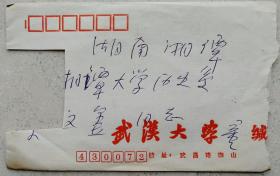 湖南湘潭
湘潭大学历史系
文 同志
武漢大学 缄
430072 地址：武昌珞珈山